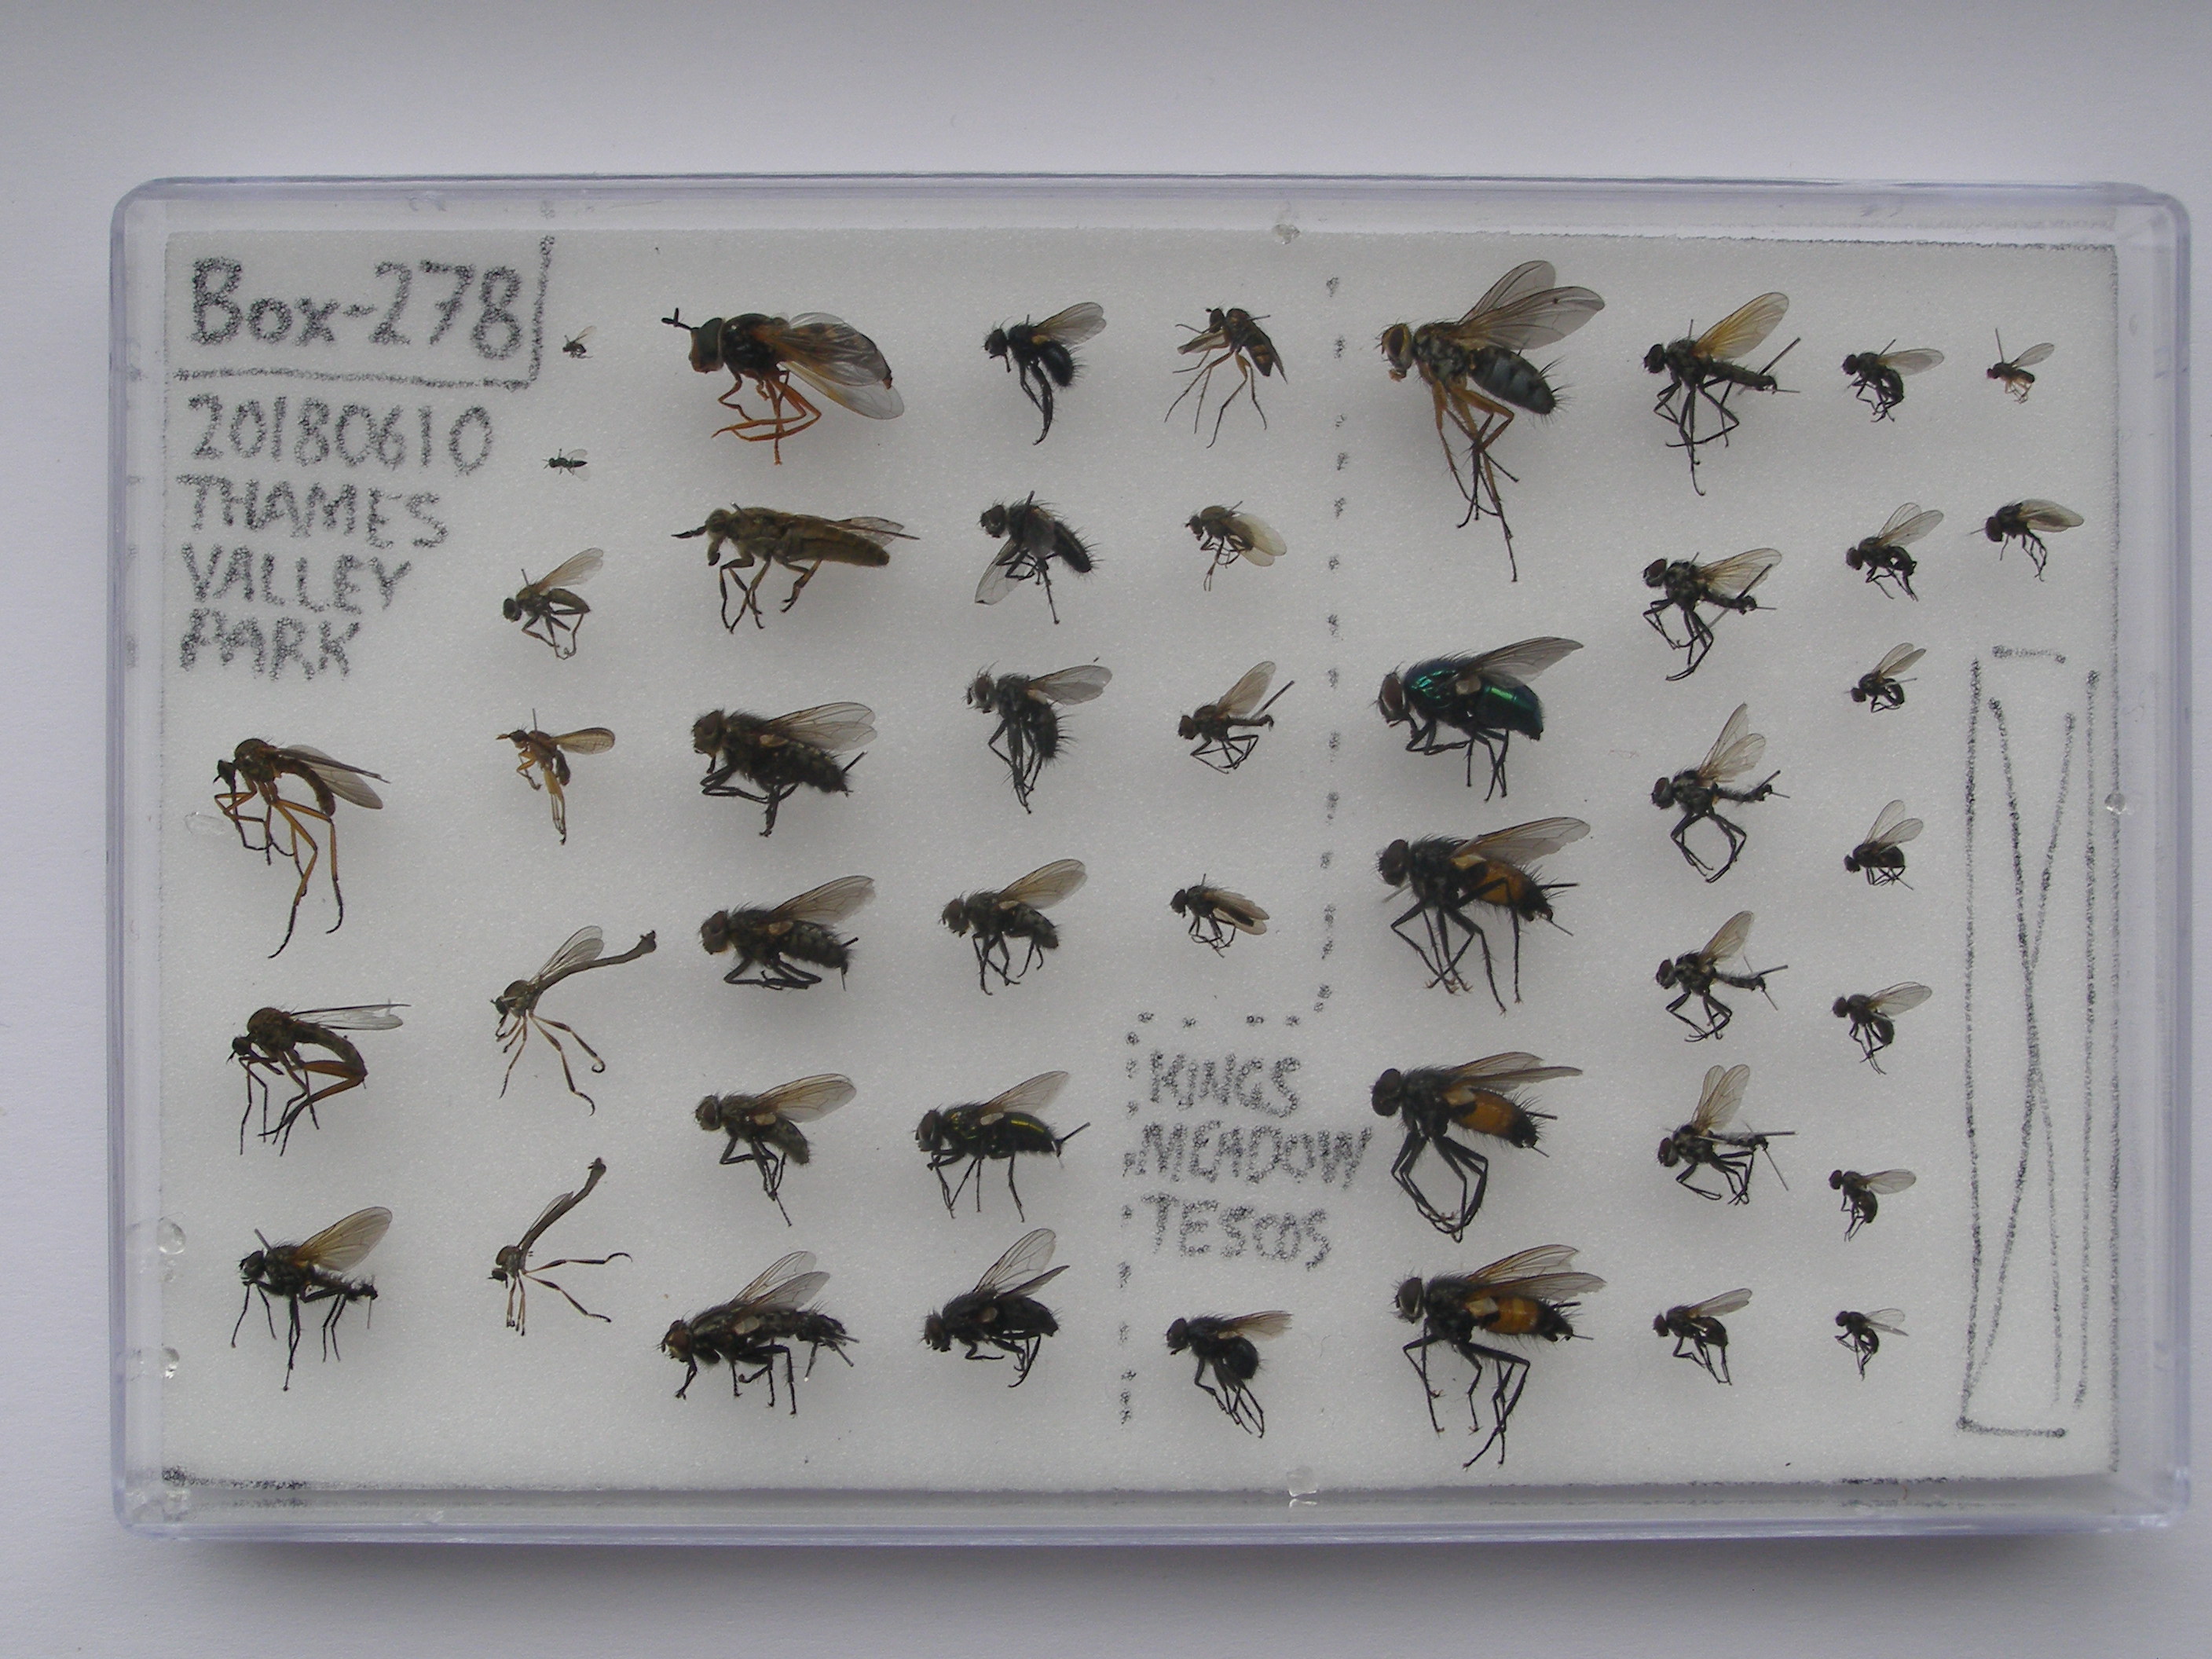 Box-278
20180610
THAMES
VALLEY
PARK
KINGS
MEADOW
TESCOS